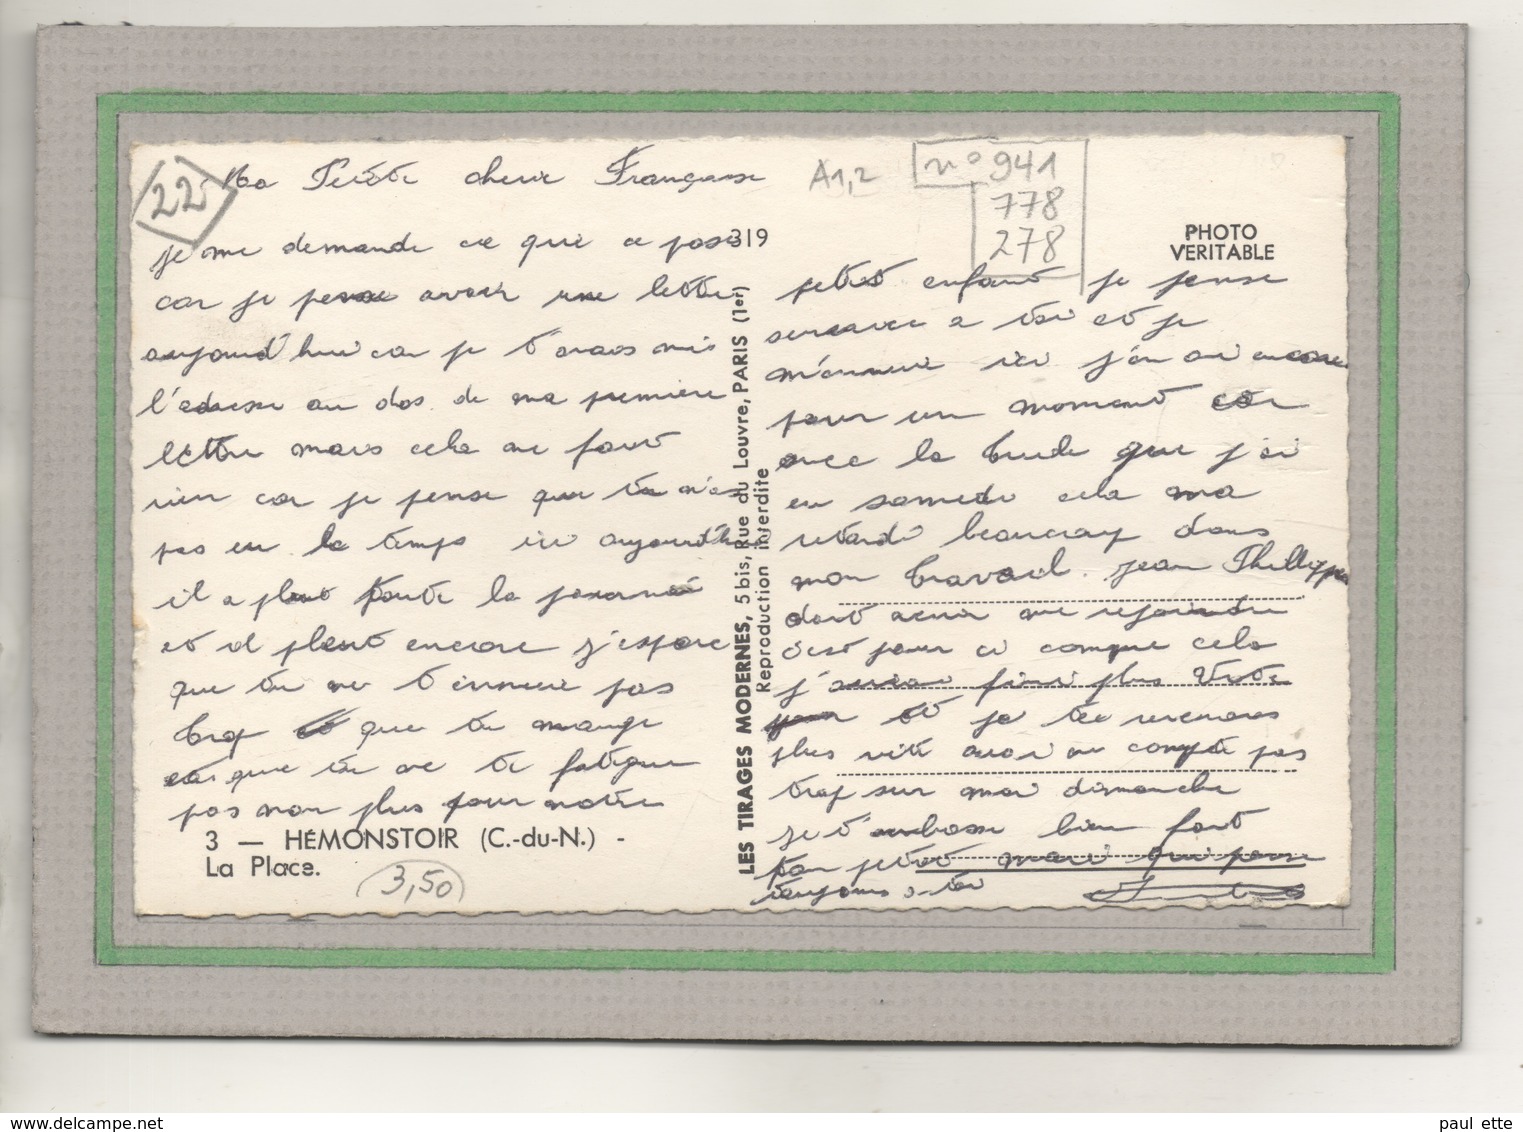 22
Ma Petite cherie Françoise
je me demande ce que ce passe
car je pense avoir une lettre
aujourd'hui car je t'avais mis
l'adresse au dos de ma premiere
lettre mais cela ne fait
rien car je pense que tu n'as
pas eu le temps ici aujourd'hui
il a pleut toute la journée
et il pleut encore j'espere
que tu ne t'ennuie pas
trop et que tu mange
et que tu ne te fatigue
pas non plus pour notre
3 — HÉMONSTOIR (C.-du-N.) -
La Place.
3,50
319
LES TIRAGES MODERNES, 5 bis, Rue du Louvre, PARIS (1er)
Reproduction interdite
A1,2
n° 941
778
278
PHOTO
VERITABLE
petit enfant je pense
a toi et je
m'ennuie ici j'en ai encore
pour un moment car
avec la que j'ai
eu samedi cela ma
retardé beaucoup dans
mon travail. Jean Philippe
doit venir me rejoindre
c'est pour ci compte cela
j'aurai fini plus vite
et je te reverrais
plus vite aussi ne compte pas
trop sur moi dimanche
je t'embrasse bien fort
ton petit mari qui pense
toujours a toi
paul ette